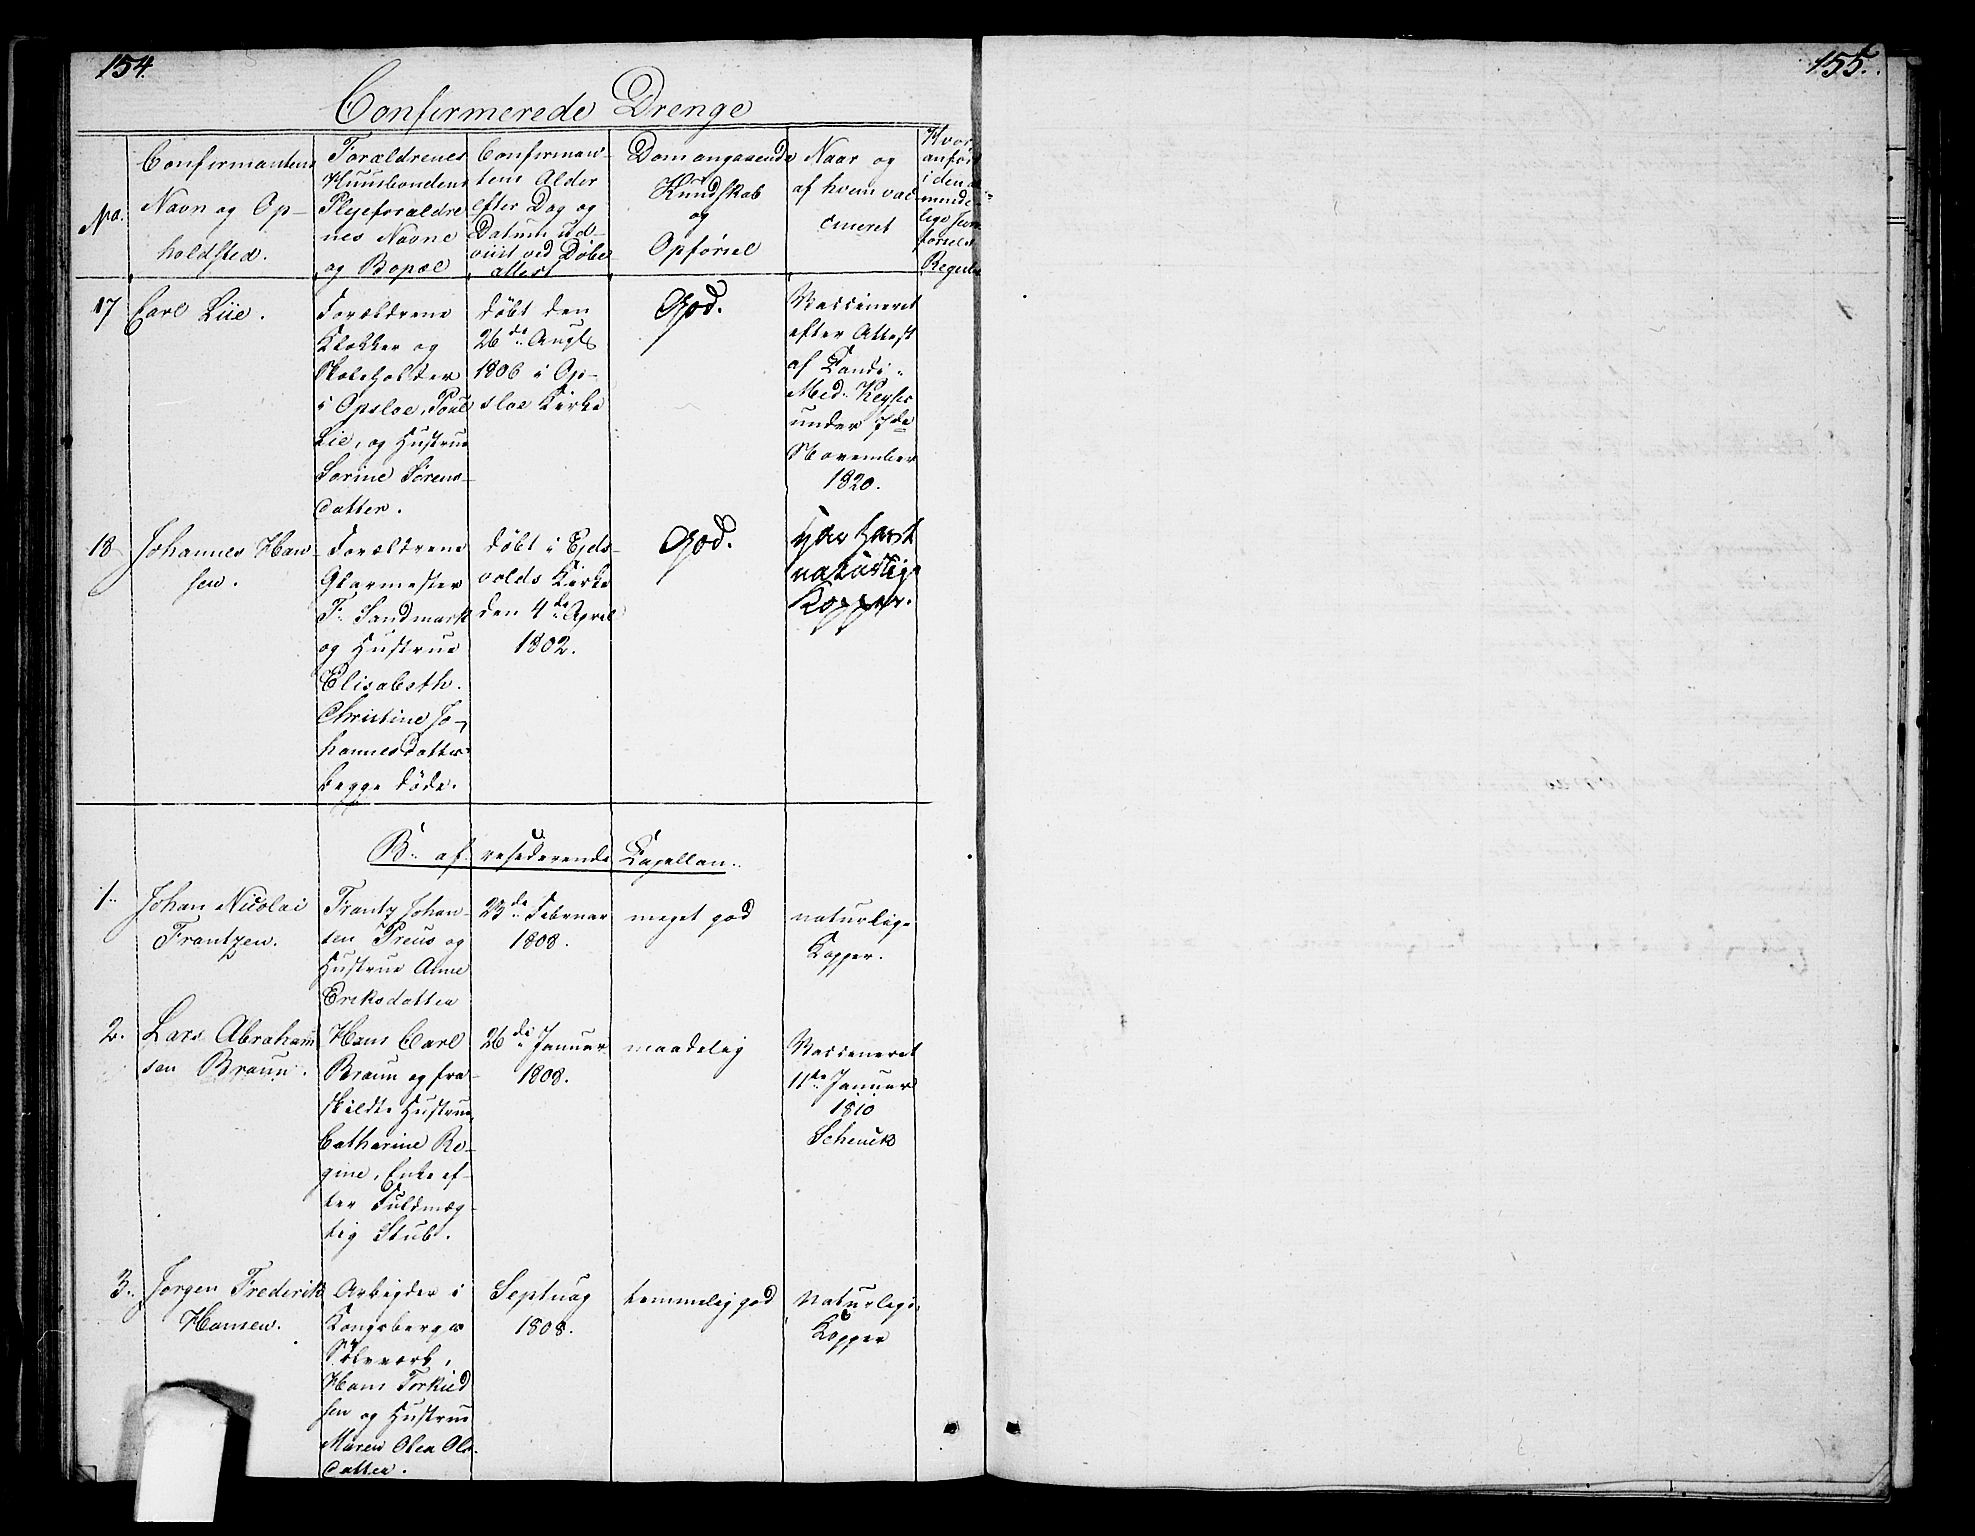 154.
155.
Confirmerede Drenge
No.
Confirmantens
Navn og Op-
holdsted.
Forældrenes
Huusbondens
Plejeforældre
nes Navne
og Bopæl
Confirman-
tens Alder
efter Dag og
Datum ud-
viist ved Døbe
attest
Dom angaaende
Kundskab
og
Opførsel
Naar og
af hvem vac
cineret
Hvor
anført
i den al-
minde-
lige Jevn
førsels
Regist
17
Carl Liie.
Forældrene
Klokker og
Skoleholder
i Opsloe, Poul
Lie, og Hustrue
Sorine Sørens
datter.
døbt den
26de Augt
1806 i Op-
sloe Kirke
God.
Vaccineret
efter Attest
af Candi.
Med. Keyser
under 7de
November
1820.
18
Johannes Han-
sen.
Forældrene
Glarmester
F. Sandmark
og Hustrue
Elisabeth
Christine Jo-
hannesdatter
begge døde.
døbt i Ejds-
volds Kirke
den 4de April
1802.
God.
har havt
naturlige
Kopper.
B. af resederende Capellan.
1.
Johan Nicolai
Frantzen.
Frantz Johan-
sen Preus og
Hustrue Anne
Eriksdatter
23de Februar
1808.
meget god
naturlige
Kopper.
2.
Lars Abraham
sen Braun.
Hans Carl
Braun og fra-
skildte Hustrue
Catharine Re-
gine, Enke ef-
ter Fuldmæg-
tig Stub.
26de Januar
1808.
maadelig
Vaccineret
11te Januar
1810
Schenck
3.
Jørgen Frederik
Hansen.
Arbejder i
Kongsbergs
Sølvværk,
Hans Torkild
sen og Hustrue
Maren Olea Ols-
datter.
Septuag
1808.
temmelig god
Naturlige
Kopper